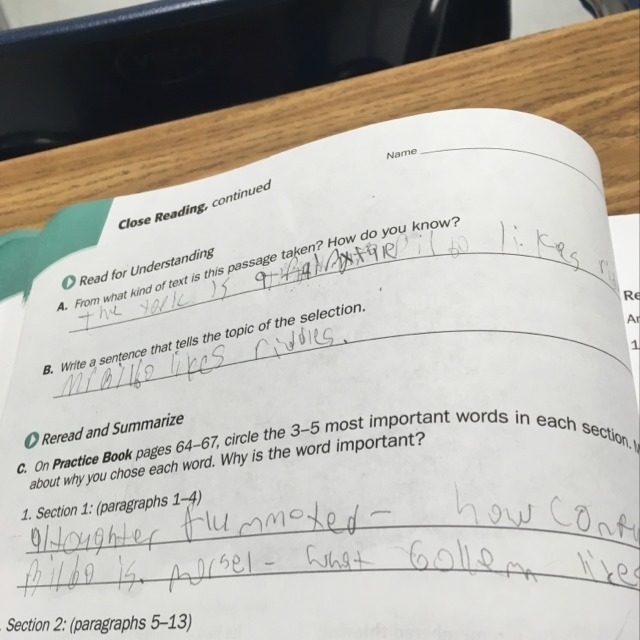 Name
Close Reading, continued
Read for Understanding
A. From what kind of text is this passage taken? How do you know?
the is likes
B. Write a sentence that tells the topic of the selection.
likes riddles.
Reread and Summarize
C. On Practice Book pages 64–67, circle the 3–5 most important words in each section.
about why you chose each word. Why is the word important?
1. Section 1: (paragraphs 1–4)
altoughter flummoxed - how
Bilbo is. morsel - what Gollem likes
Section 2: (paragraphs 5–13)
Re
1